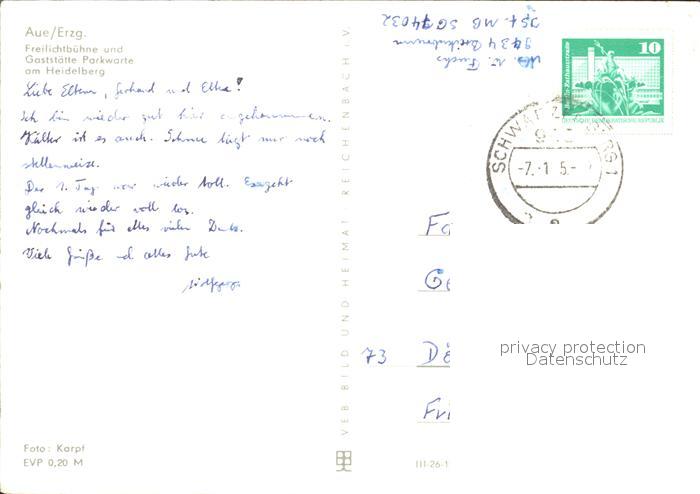 Aue/Erzg.
Freilichtbühne und
Gaststätte Parkwarte
am Heidelberg
Liebe Eltern, Gerhard und Elke!
Ich bin wieder gut hier angekommen.
Kälter ist es auch. Schnee liegt nur noch
stellenweise.
Der 1. Tag war wieder toll. Es geht
gleich wieder voll los.
Nochmals für alles vielen Dank.
Viele Grüße und alles Gute
Wolfgang
Foto: Karpf
EVP 0,20 M
VEB BILD UND HEIMAT REICHENBACH i. V.
III-26-1
W. Fuchs
9434
Ist. MB SG 74032
10
Berlin-Rathausstraße
DEUTSCHE DEMOKRATISCHE REPUBLIK
SCHWARZENBERG 1
-7.-1 5.-
a
Fa
Ge
73 Dö
Fri
privacy protection
Datenschutz